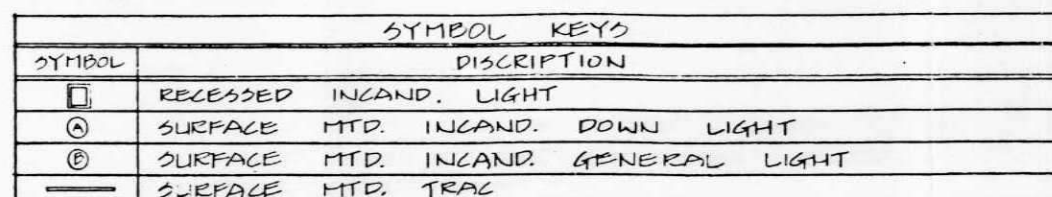 SYMBOL KEYS
SYMBOL DISCRIPTION
RECESSED INCAND. LIGHT
A SURFACE MTD. INCAND. DOWN LIGHT
B SURFACE MTD. INCAND. GENERAL LIGHT
SURFACE MTD. TRAC